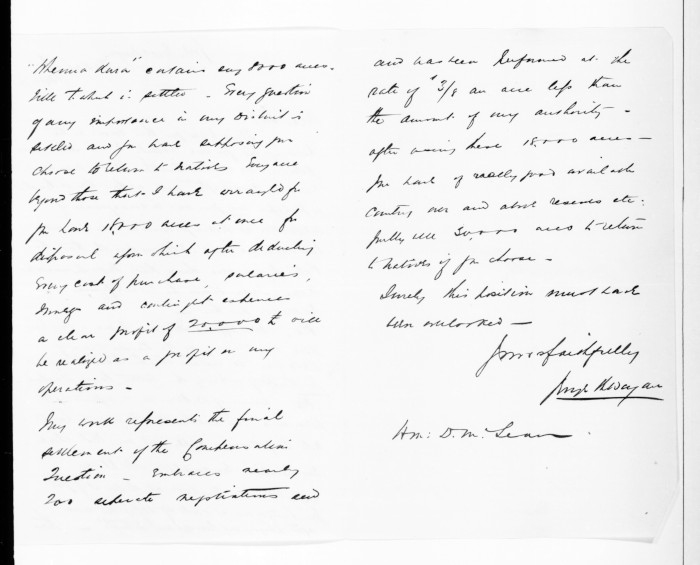 "Whenua Kura" contains say 8000 acres.
title to which is settled - Every question
of any importance in my District is
settled and you have supposing you
choose to return to Natives Every acre
beyond those that I have arranged for
you have 18,000 acres at once for
disposal upon which after deducting
Every cost of purchase, salaries,
surveys and contingent expenses
a clear profit of 20,000 £ will
be realized as a profit on my
operations -
My work represents the final
settlement of the Compensation
Question - Embraces nearly
200 separate negotiations and
and has been performed at the
rate of 3/9 an acre less than
the amount of my authority -
after using these 18,000 acres -
you have of really good available
country over and above reserves etc.
fully 30,000 acres to return
to natives if you choose -
Surely this position must have
been overlooked -
Yours faithfully
Hon: D. McLean